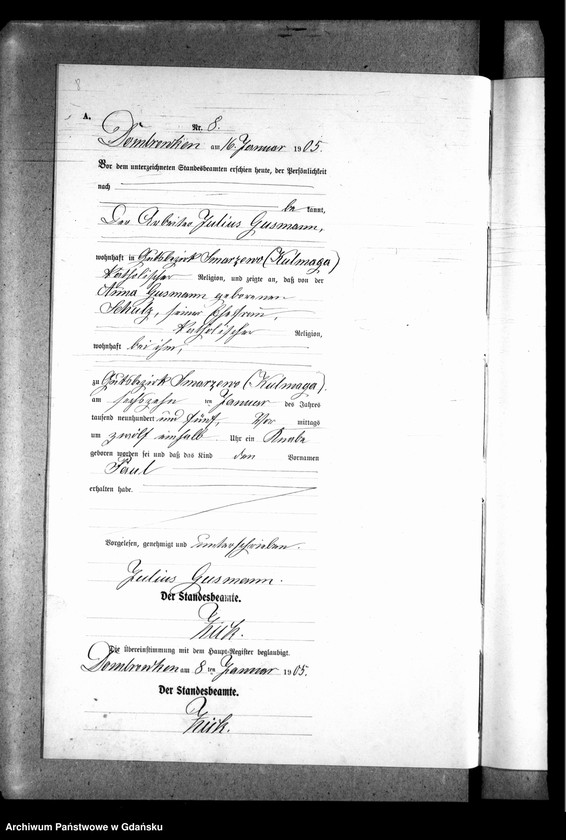 8
A.
Nr. 8.
Dombrowken am 16 Januar 1905.
Vor dem unterzeichneten Standesbeamten erschien heute, der Persönlichkeit
nach
be kannt,
Der Arbeiter Julius Gusmann,
wohnhaft in Gutsbezirk Smarzewo (Kulmaga)
katholischer Religion, und zeigte an, daß von der
Anna Gusmann geborenen
Schulz, seiner Ehefrau,
katholischer Religion,
wohnhaft bei ihm,
zu Gutsbezirk Smarzewo (Kulmaga).
am sechszehn ten Januar des Jahres
tausend neunhundert und fünf, Vor mittags
um zwölf einhalb Uhr ein Knabe
geboren worden sei und daß das Kind den Vornamen
Paul
erhalten habe.
Vorgelesen, genehmigt und unterschrieben.
Julius Gusmann.
Der Standesbeamte.
Die Übereinstimmung mit dem Haupt-Register beglaubigt.
Dombrowken am 8 ten Januar 1905.
Der Standesbeamte.
Archiwum Państwowe w Gdańsku